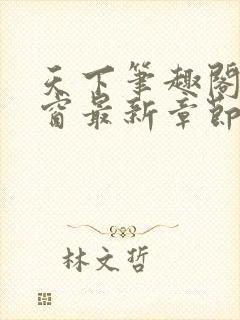 天下筆趣閣
窗最新章節
林文哲